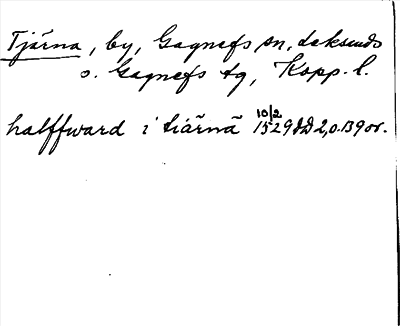 Tjärna, by, Gagnefs sn, Leksands
o. Gagnefs tg, Kopp. l.
halffward i tiärnä 10/2 1529 DD 2, o. 139 or.